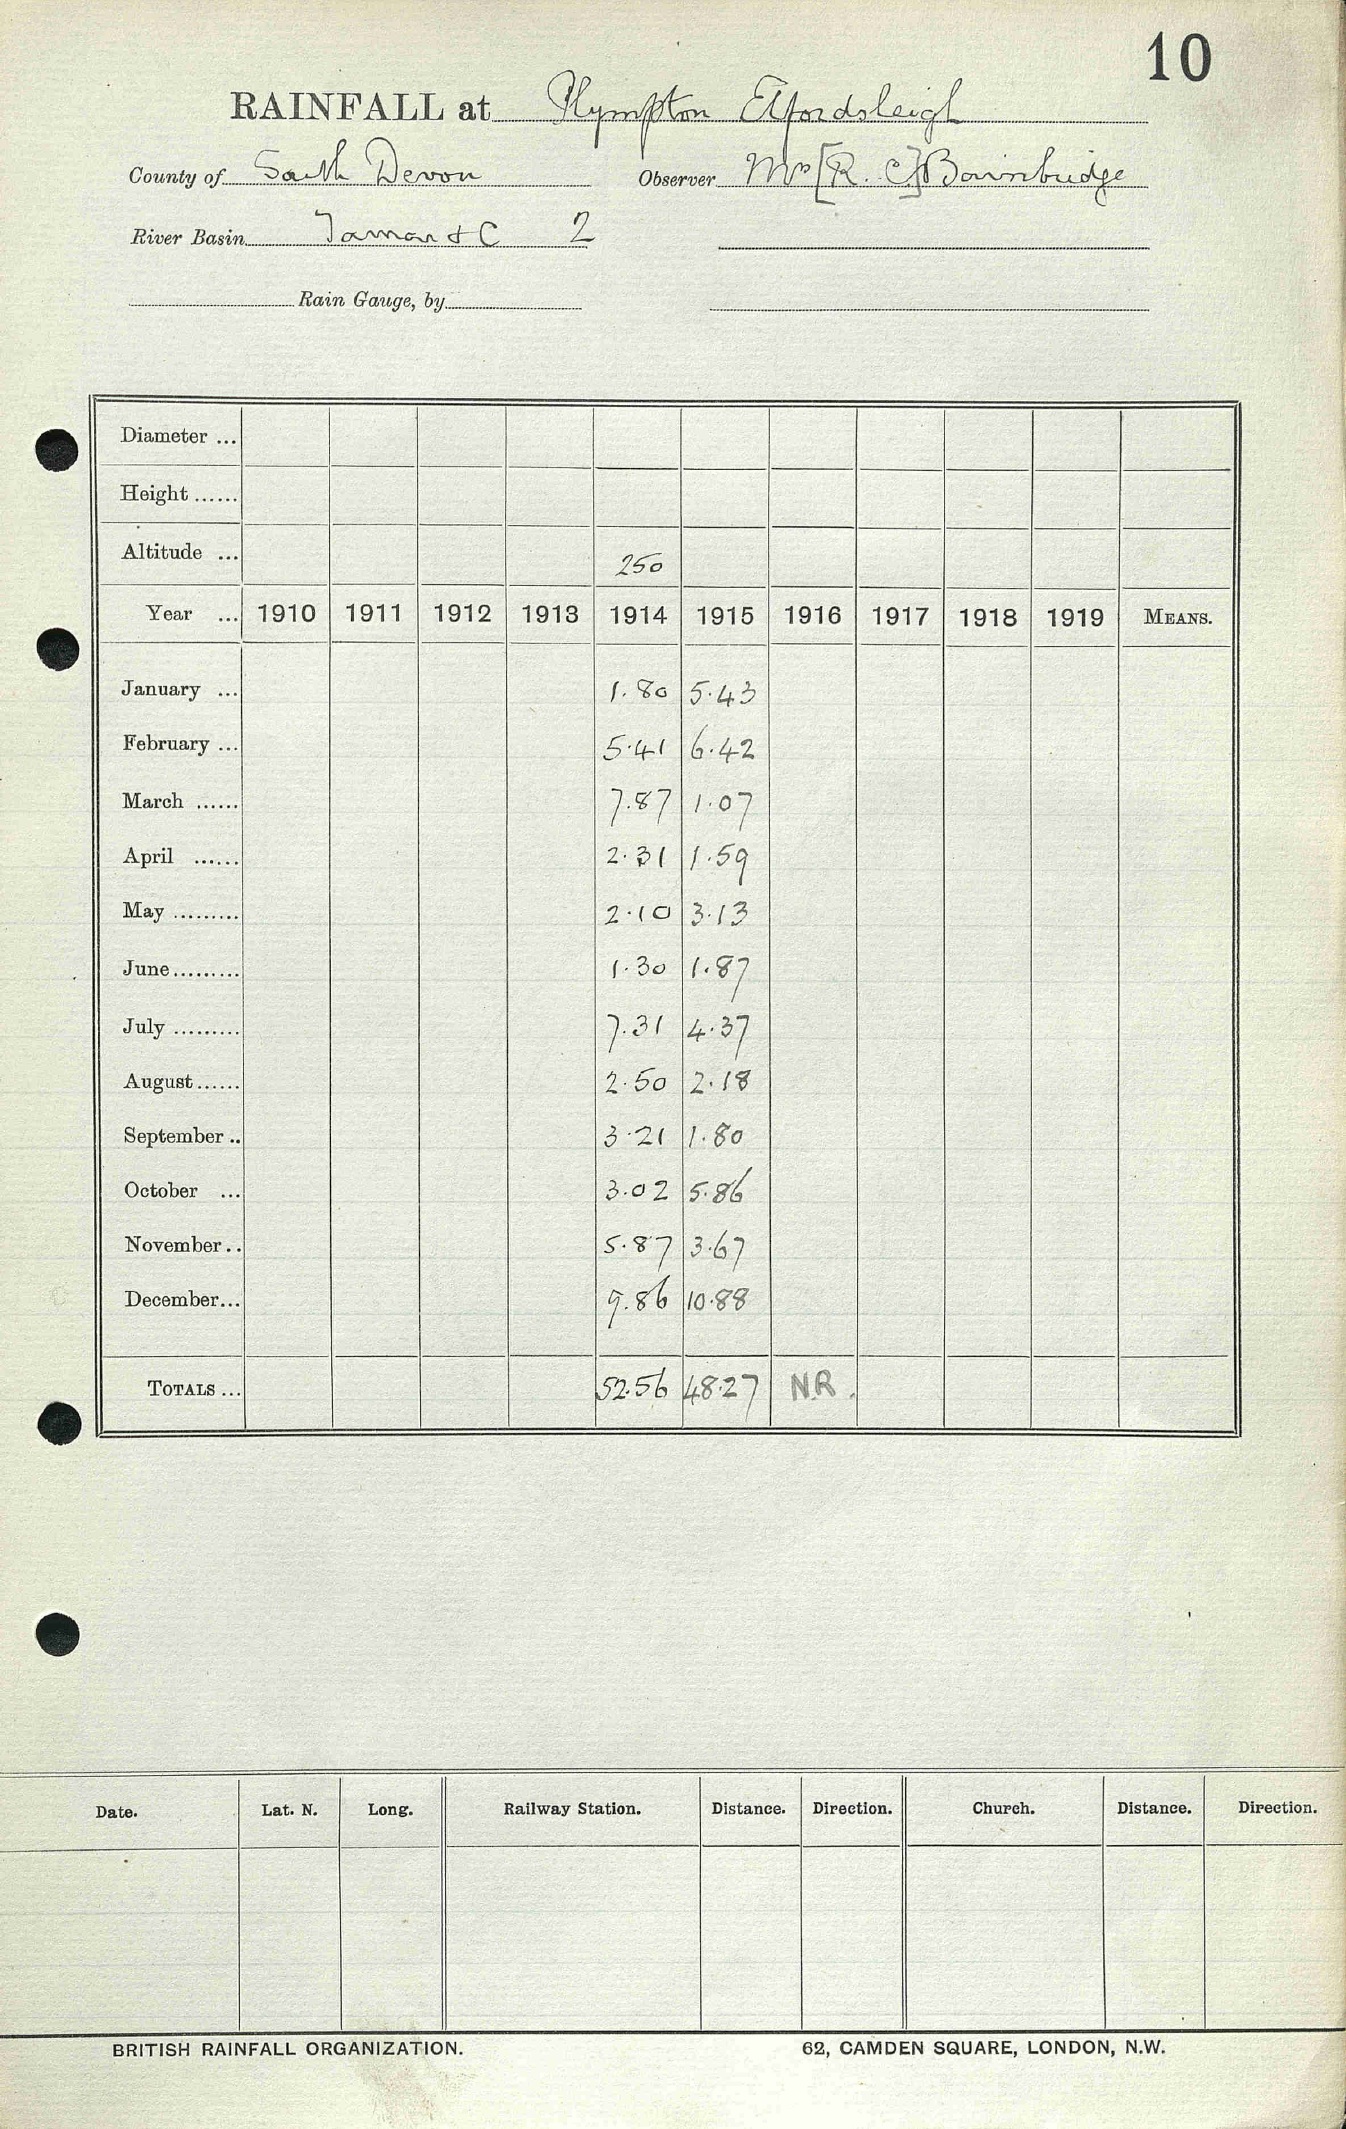 10
RAINFALL at Plympton Elfordsleigh
County of South Devon Observer Mrs [R. C.] Bainbridge
River Basin Tamar & C 2
Rain Gauge, by
Diameter ...
Height ......
Altitude ... 250
Year ... 1910 1911 1912 1913 1914 1915 1916 1917 1918 1919 MEANS.
January ... 1.80 5.43
February ... 5.41 6.42
March ...... 7.87 1.07
April ...... 2.31 1.59
May ......... 2.10 3.13
June ......... 1.30 1.87
July ......... 7.31 4.37
August ...... 2.50 2.18
September .. 3.21 1.80
October ... 3.02 5.86
November .. 5.87 3.67
December ... 9.86 10.88
TOTALS ... 52.56 48.27 N.R.
Date. Lat. N. Long. Railway Station. Distance. Direction. Church. Distance. Direction.
BRITISH RAINFALL ORGANIZATION. 62, CAMDEN SQUARE, LONDON, N.W.